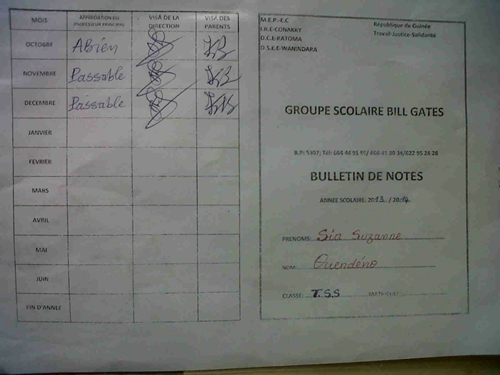 MOIS APPRECIATION DU PROFESSEUR PRINCIPAL VISA DE LA DIRECTION VISA DES PARENTS
OCTOBRE ABien
NOVEMBRE Passable
DECEMBRE Passable
JANVIER
FEVRIER
MARS
AVRIL
MAI
JUIN
FIN D'ANNEE
M.E.P.-E.C
I.R.E-CONAKRY
D.C.E-RATOMA
D.S.E.E-WANINDARA
République de Guinée
Travail-Justice-Solidarité
GROUPE SCOLAIRE BILL GATES
BULLETIN DE NOTES
ANNEE SCOLAIRE 2013 / 2014
PRENOMS Sia Suzanne
NOM Ouendéno
CLASSE T.S.S